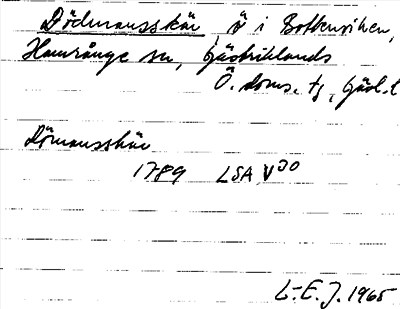 Dödmansskär, ö i Bottenviken,
Hamrånge sn, Gästriklands
Ö. doms. tg, Gävl. l
Dömansskär
1789 LSA V30
L-E. J. 1965